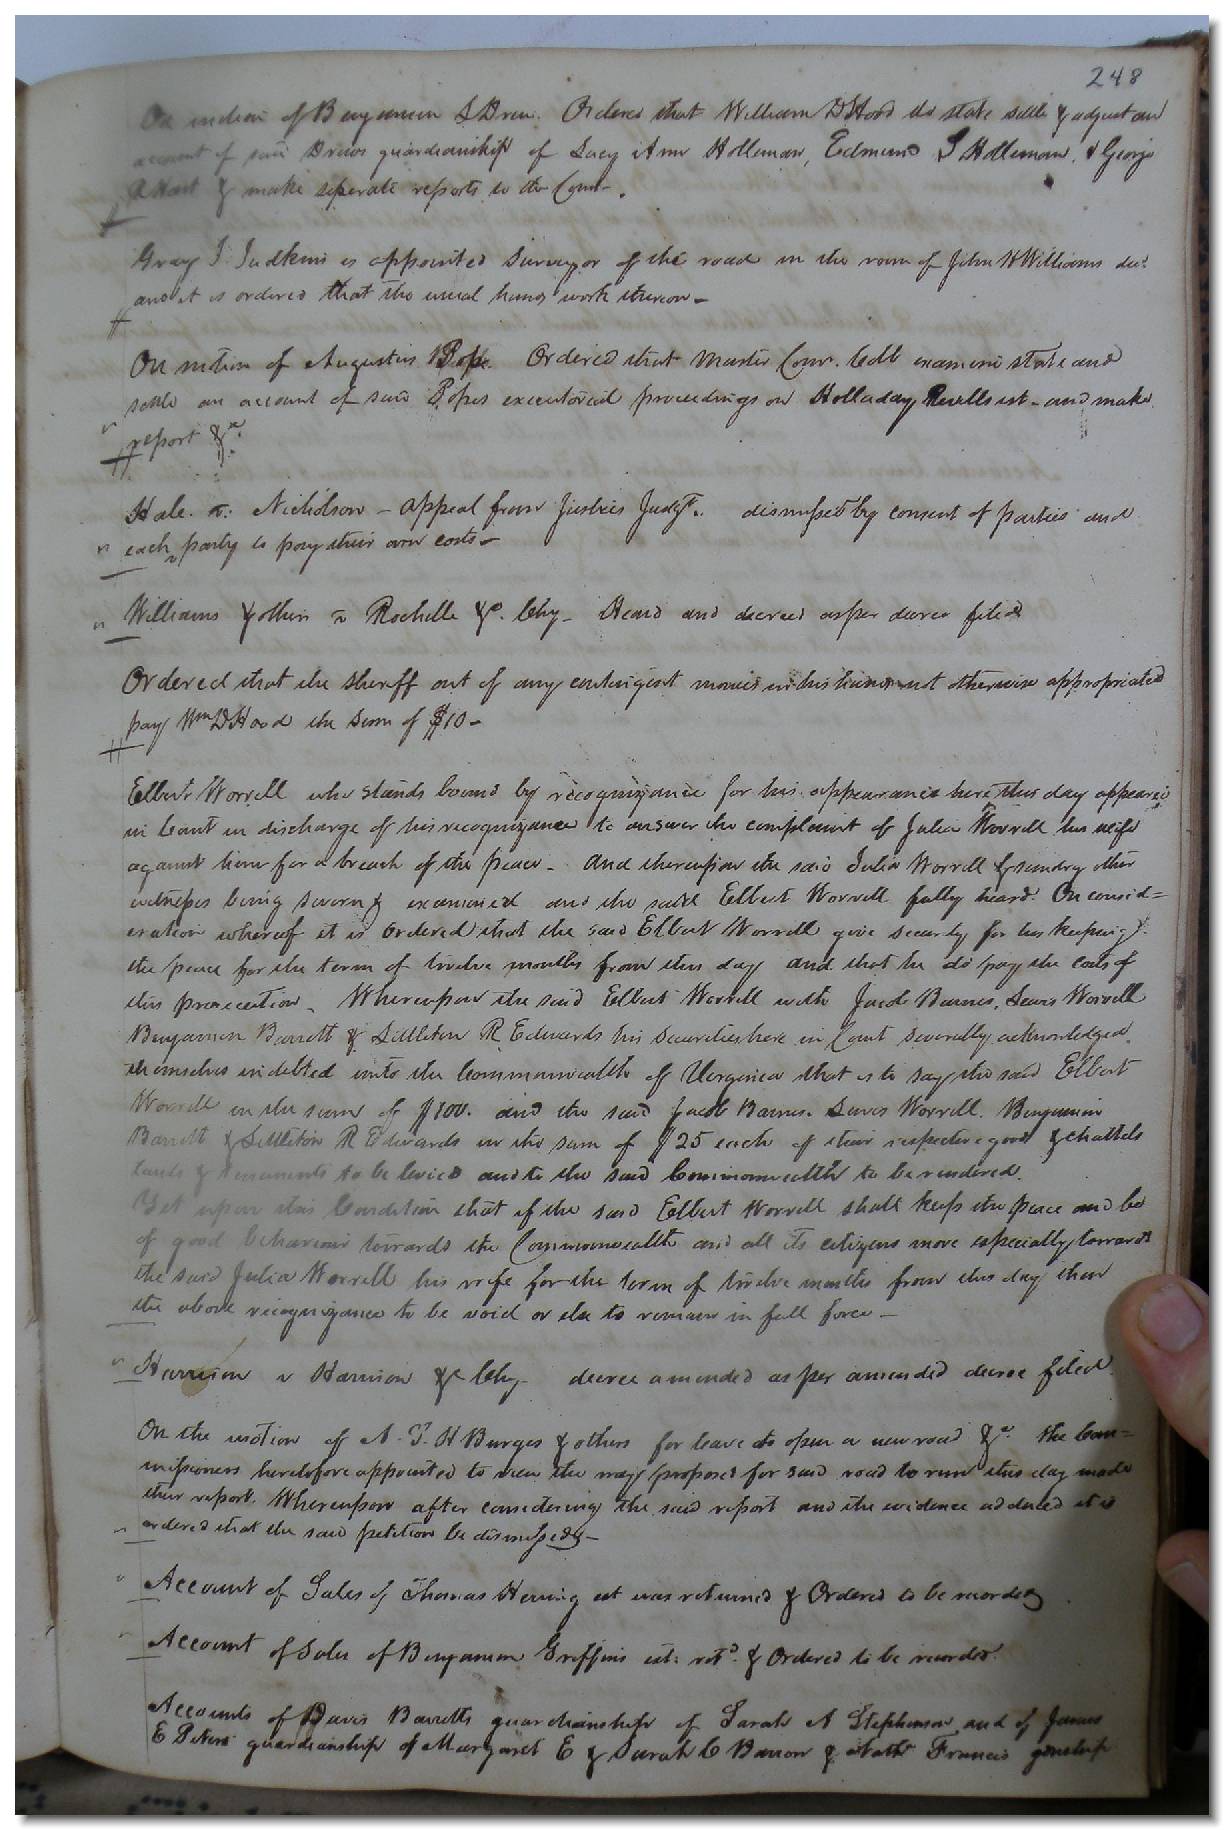 248
On motion of Benjamin S Drew. Ordered that William D Hood do state settle & adjust an
account of said Drews guardianship of Lucy Ann Holleman, Edmund S Holleman, & George
A Hart & make seperate reports to the Court.
Gray T Judkins is appointed Surveyor of the road in the room of John H Williams decd
and it is ordered that the usual hands work thereon -
On motion of Augustus Pope. Ordered that Master Comr. Cobb examine state and
settle an account of said Popes executorial proceedings on Holladay Revells est - and make
report &c.
Hale. v: Nicholson - appeal from Justices Judgt. dismissed by consent of parties and
each party to pay their own costs -
Williams & others v Rochelle &c. Chy - Heard and decreed as per decree filed
Ordered that the sheriff out of any contingent monies in his hands not otherwise appropriated
pay Wm D Hood the sum of $10 -
Elbert Worrell who stands bound by recognizance for his appearance here this day appeared
in Court in discharge of his recognizance to answer the complaint of Julia Worrell his wife
against him for a breach of the peace - and thereupon the said Julia Worrell & sundry other
witnesses being sworn & examined and the said Elbert Worrell fully heard. On consid=
eration whereof it is Ordered that the said Elbert Worrell give security for his keeping
the peace for the term of twelve months from this day and that he do pay the costs of
this prosecution. Whereupon the said Elbert Worrell with Jacob Barnes, Lewis Worrell
Benjamin Barrett & Littleton R Edwards his securities here in Court severally acknowledged
themselves indebted unto the Commonwealth of Virginia that is to say the said Elbert
Worrell in the sum of $100. and the said Jacob Barnes. Lewis Worrell. Benjamin
Barrett & Littleton R Edwards in the sum of $25 each of their respective goods & chattels
lands & tenements to be levied and to the said Commonwealth to be rendered.
Yet upon this Condition that if the said Elbert Worrell shall keep the peace and be
of good behaviour towards the Commonwealth and all its citizens more especially towards
the said Julia Worrell his wife for the term of twelve months from this day then
the above recognizance to be void or else to remain in full force -
Harrison v Harrison &c Chy - decree amended as per amended decree filed.
On the motion of A. T. H Burges & others for leave to open a new road &c. the Com=
missioners heretofore appointed to view the way proposed for said road to run this day made
their report. Whereupon after considering the said report and the evidence adduced it is
ordered that the said petition be dismissed -
Account of Sales of Thomas Herring est was returned & Ordered to be recorded
Account of Sales of Benjamin Griffins est: retd. & Ordered to be recorded.
Accounts of Davis Barretts guardianship of Sarah A Stephenson and of James
E Peters guardianship of Margaret E & Sarah C Barron & Nathl Francis gdnship